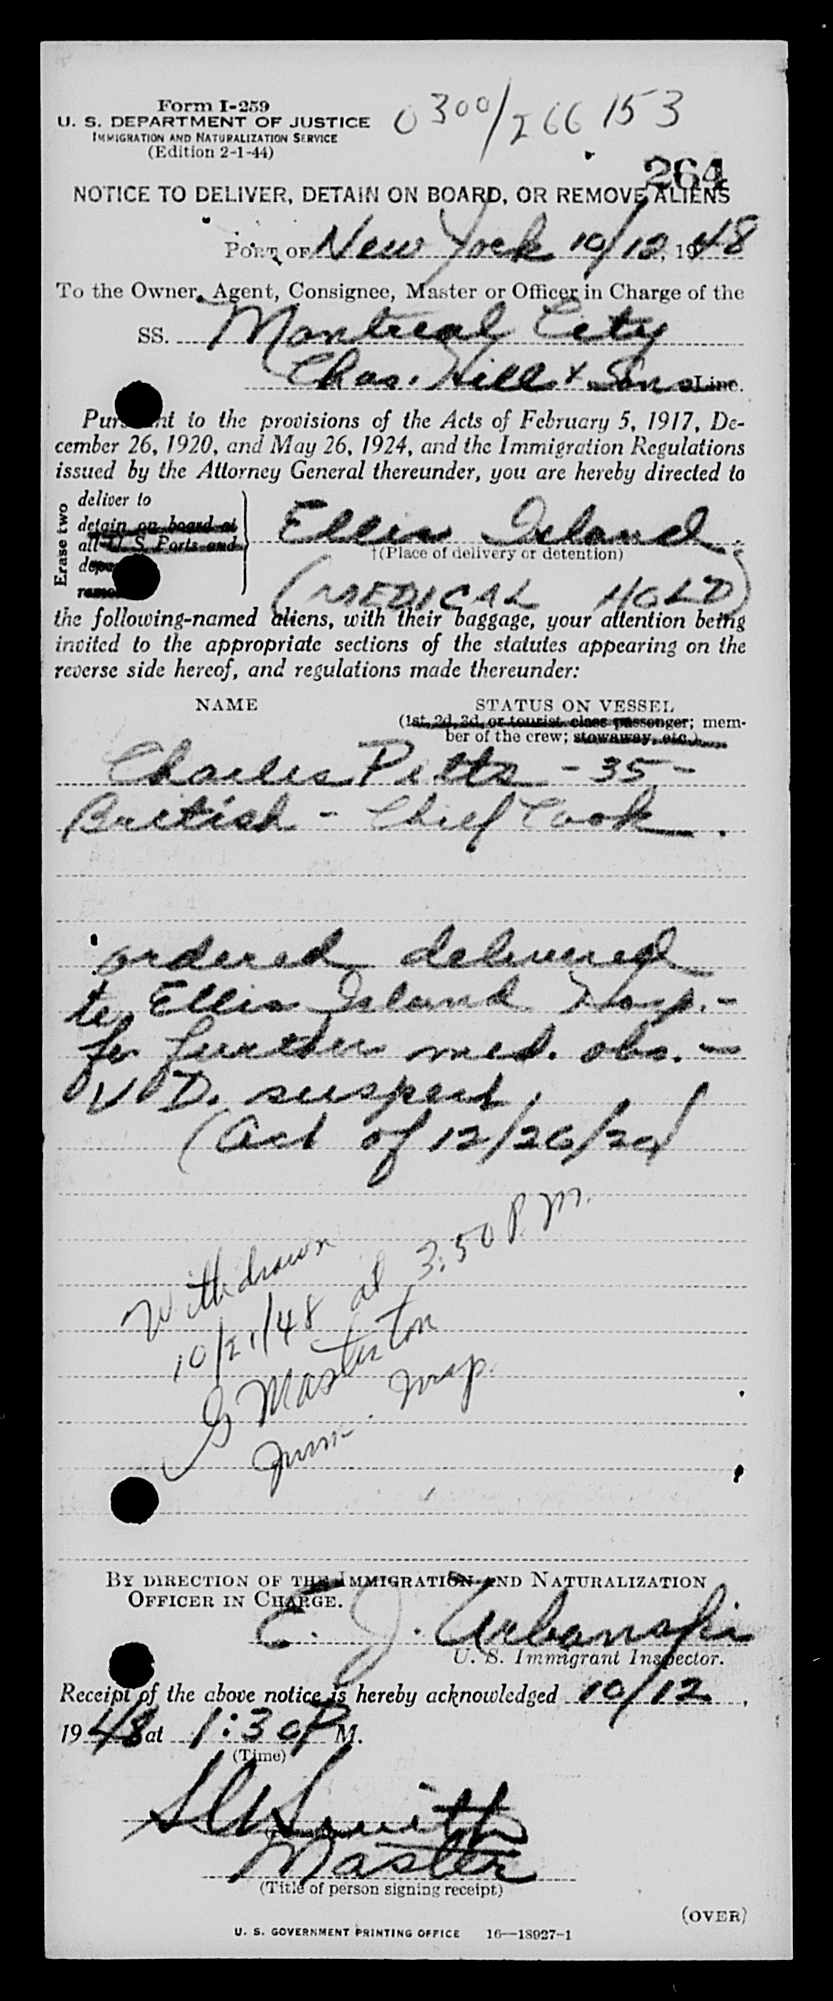 Form I-259
U. S. DEPARTMENT OF JUSTICE
IMMIGRATION AND NATURALIZATION SERVICE
(Edition 2-1-44)
0300/266153
264
NOTICE TO DELIVER, DETAIN ON BOARD, OR REMOVE ALIENS
PORT OF New York 10/12, 1948
To the Owner, Agent, Consignee, Master or Officer in Charge of the
SS. Montreal City
Chas. Hill & Sons Line.
Pursuant to the provisions of the Acts of February 5, 1917, De-
cember 26, 1920, and May 26, 1924, and the Immigration Regulations
issued by the Attorney General thereunder, you are hereby directed to
Erase two
deliver to
detain on board at
all U S Ports and
Ellis Island
†(Place of delivery or detention)
(MEDICAL HOLD)
the following-named aliens, with their baggage, your attention being
invited to the appropriate sections of the statutes appearing on the
reverse side hereof, and regulations made thereunder:
NAME STATUS ON VESSEL
(1st, 2d, 3d, or tourist class passenger; mem-
ber of the crew; stowaway, etc.)
Charles Pitts - 35 -
British - Chief Cook.
ordered delivered
to Ellis Island Hosp. -
for further med. obs. -
V D. suspect.
(Act of 12/26/20)
Withdrawn
10/21/48 at 3:50 P.M.
G Masterton
Imm. Insp.
BY DIRECTION OF THE IMMIGRATION AND NATURALIZATION
OFFICER IN CHARGE.
E. J. Urbanski
U. S. Immigrant Inspector.
Receipt of the above notice is hereby acknowledged 10/12,
1948 at 1:30 P M.
(Time)
Smith
Master
(Title of person signing receipt)
(OVER)
U. S. GOVERNMENT PRINTING OFFICE 16—18927-1